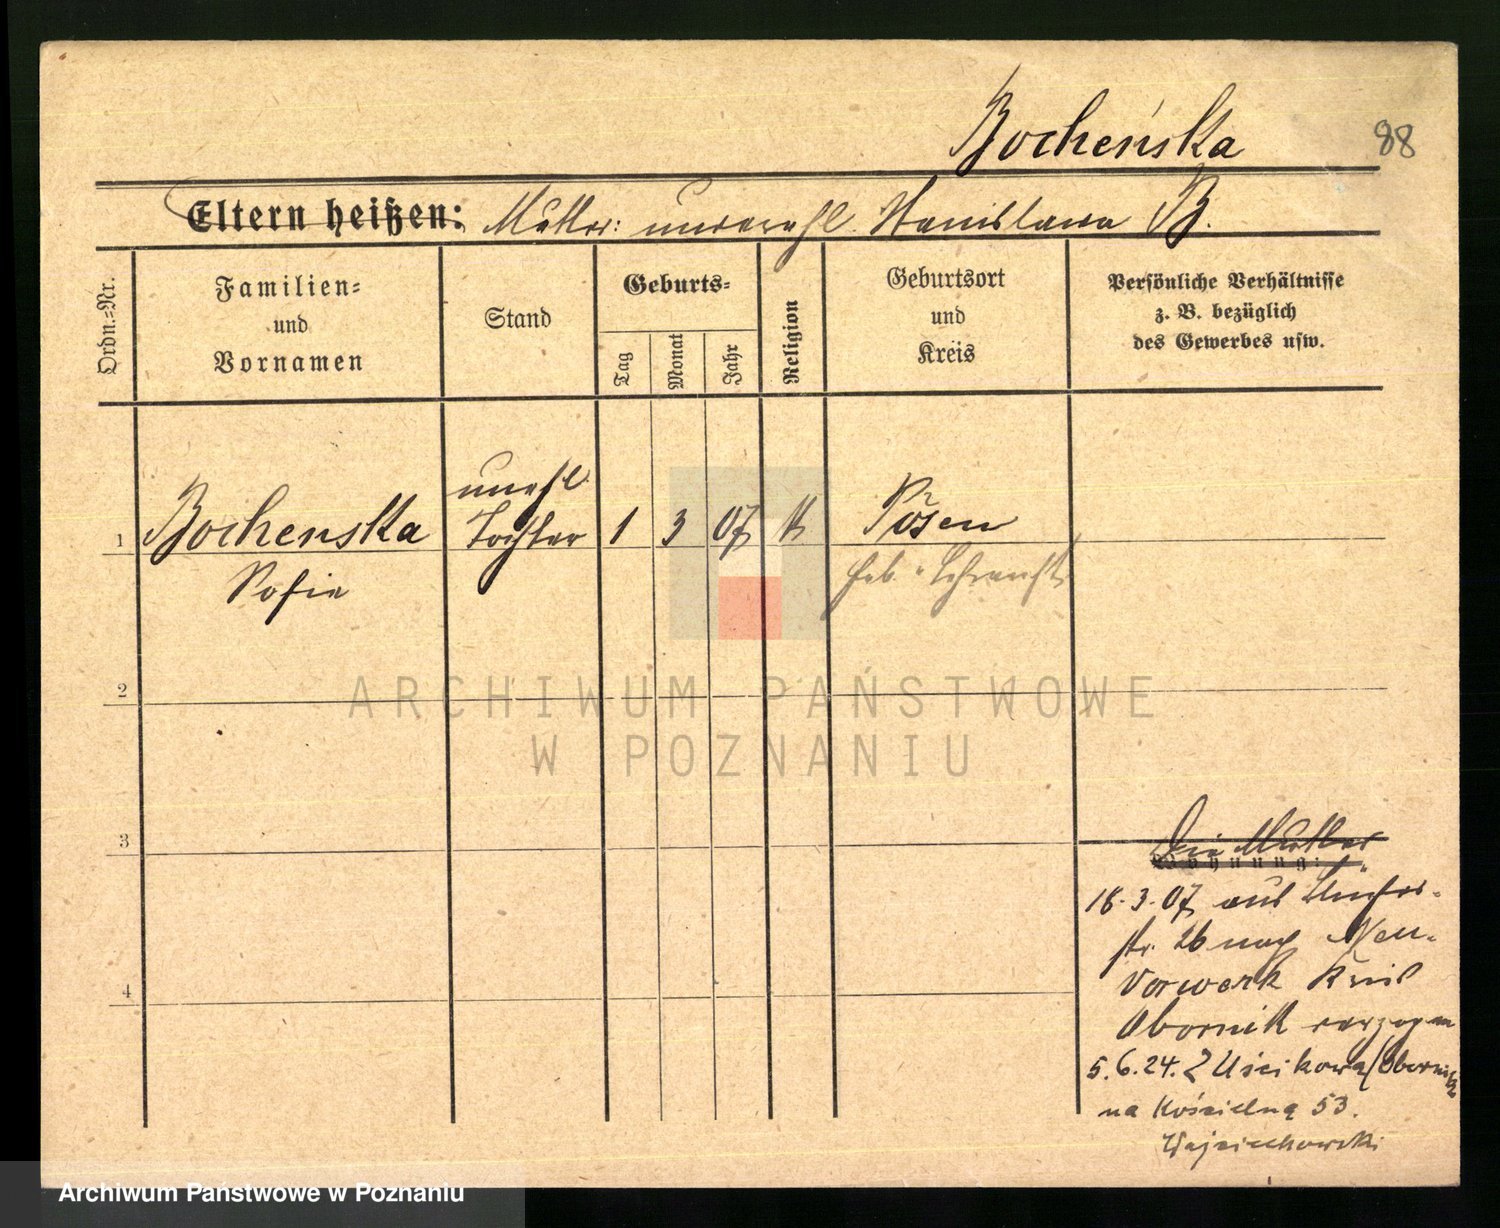 Bocheńska
88
Eltern heißen: Mutter: unverehl. Stanislawa B.
Ordn.-Nr.
Familien-
und
Vornamen
Stand
Geburts-
Tag
Monat
Jahr
Religion
Geburtsort
und
Kreis
Persönliche Verhältnisse
z. B. bezüglich
des Gewerbes usw.
1
Bochenska
Sofie
unehl.
Tochter
1
3
07
K
Posen
Heb.
2
3
4
Die Mutter
Wohnung:
18.3.07 aus
str. 26 nach Neu-
Vorwerk Kreis
Obornik verzogen
5.6.24. Z Uścikowa (Oborniki
na Kościelną 53.
Wojciechowski
ARCHIWUM PAŃSTWOWE
W POZNANIU
Archiwum Państwowe w Poznaniu